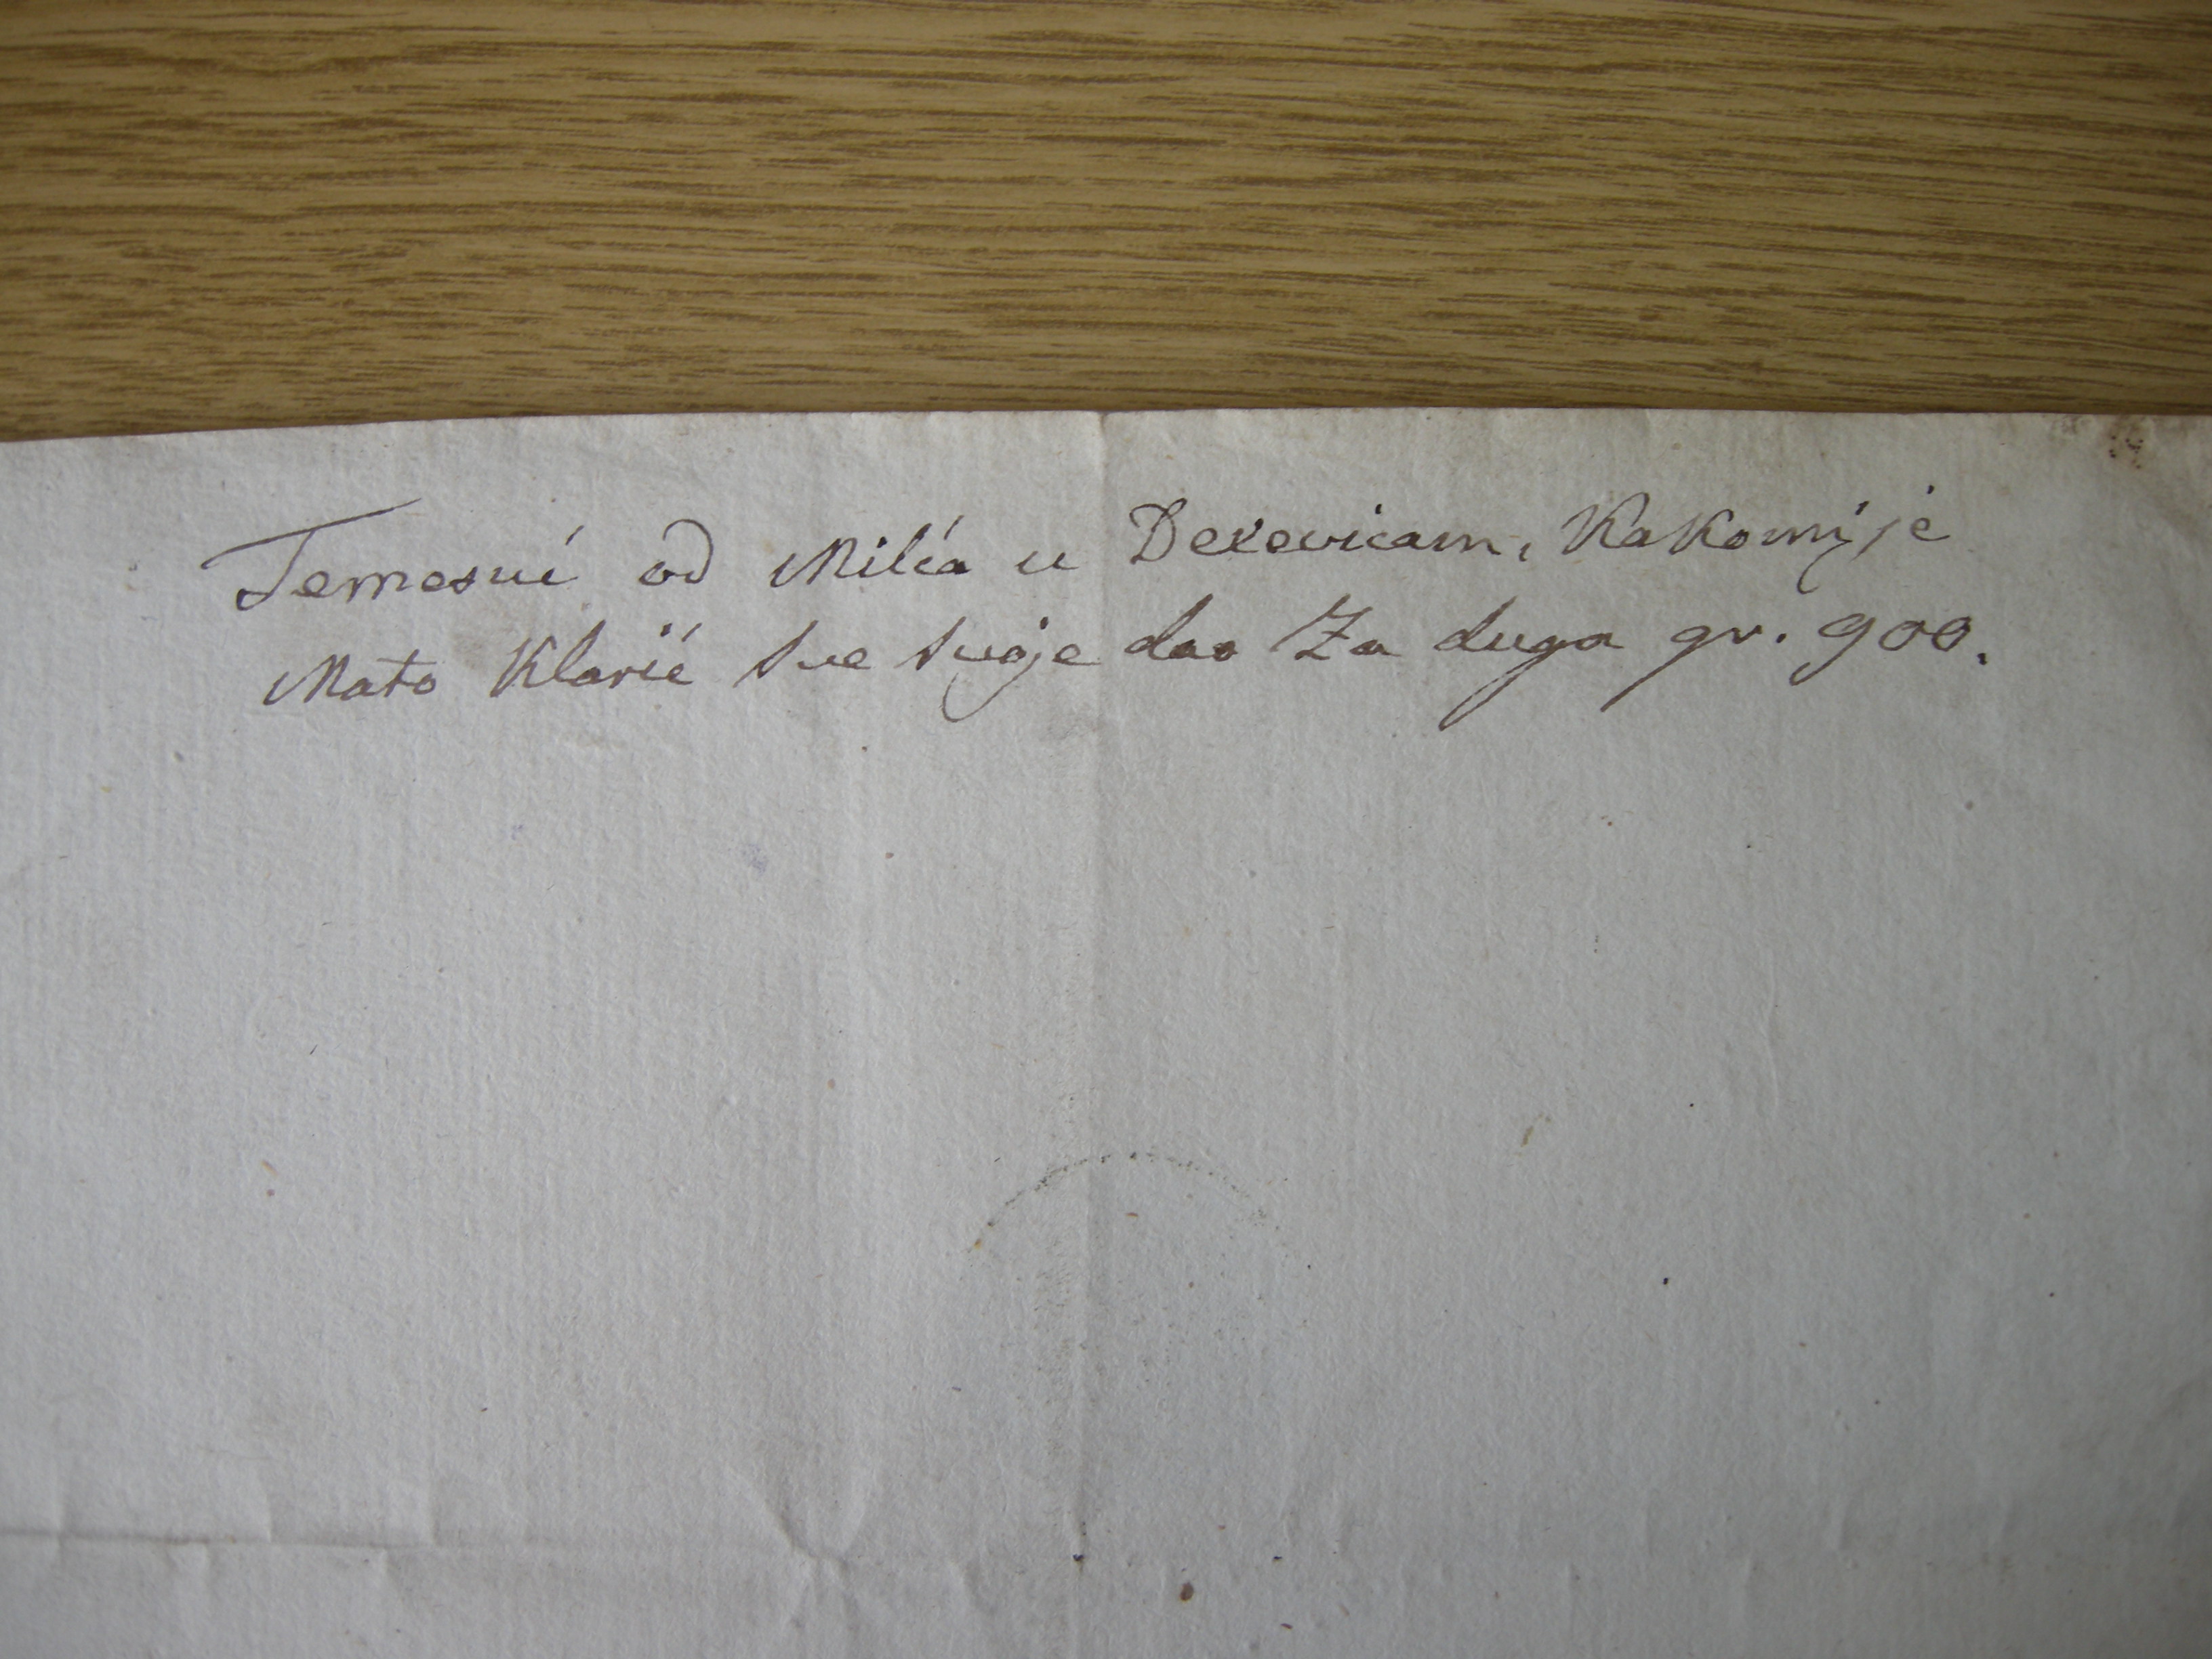 Temesui od Milća u Dexevicam, Kakomi je
Mato Klarić sve svoje dao Za duga gr. 900.